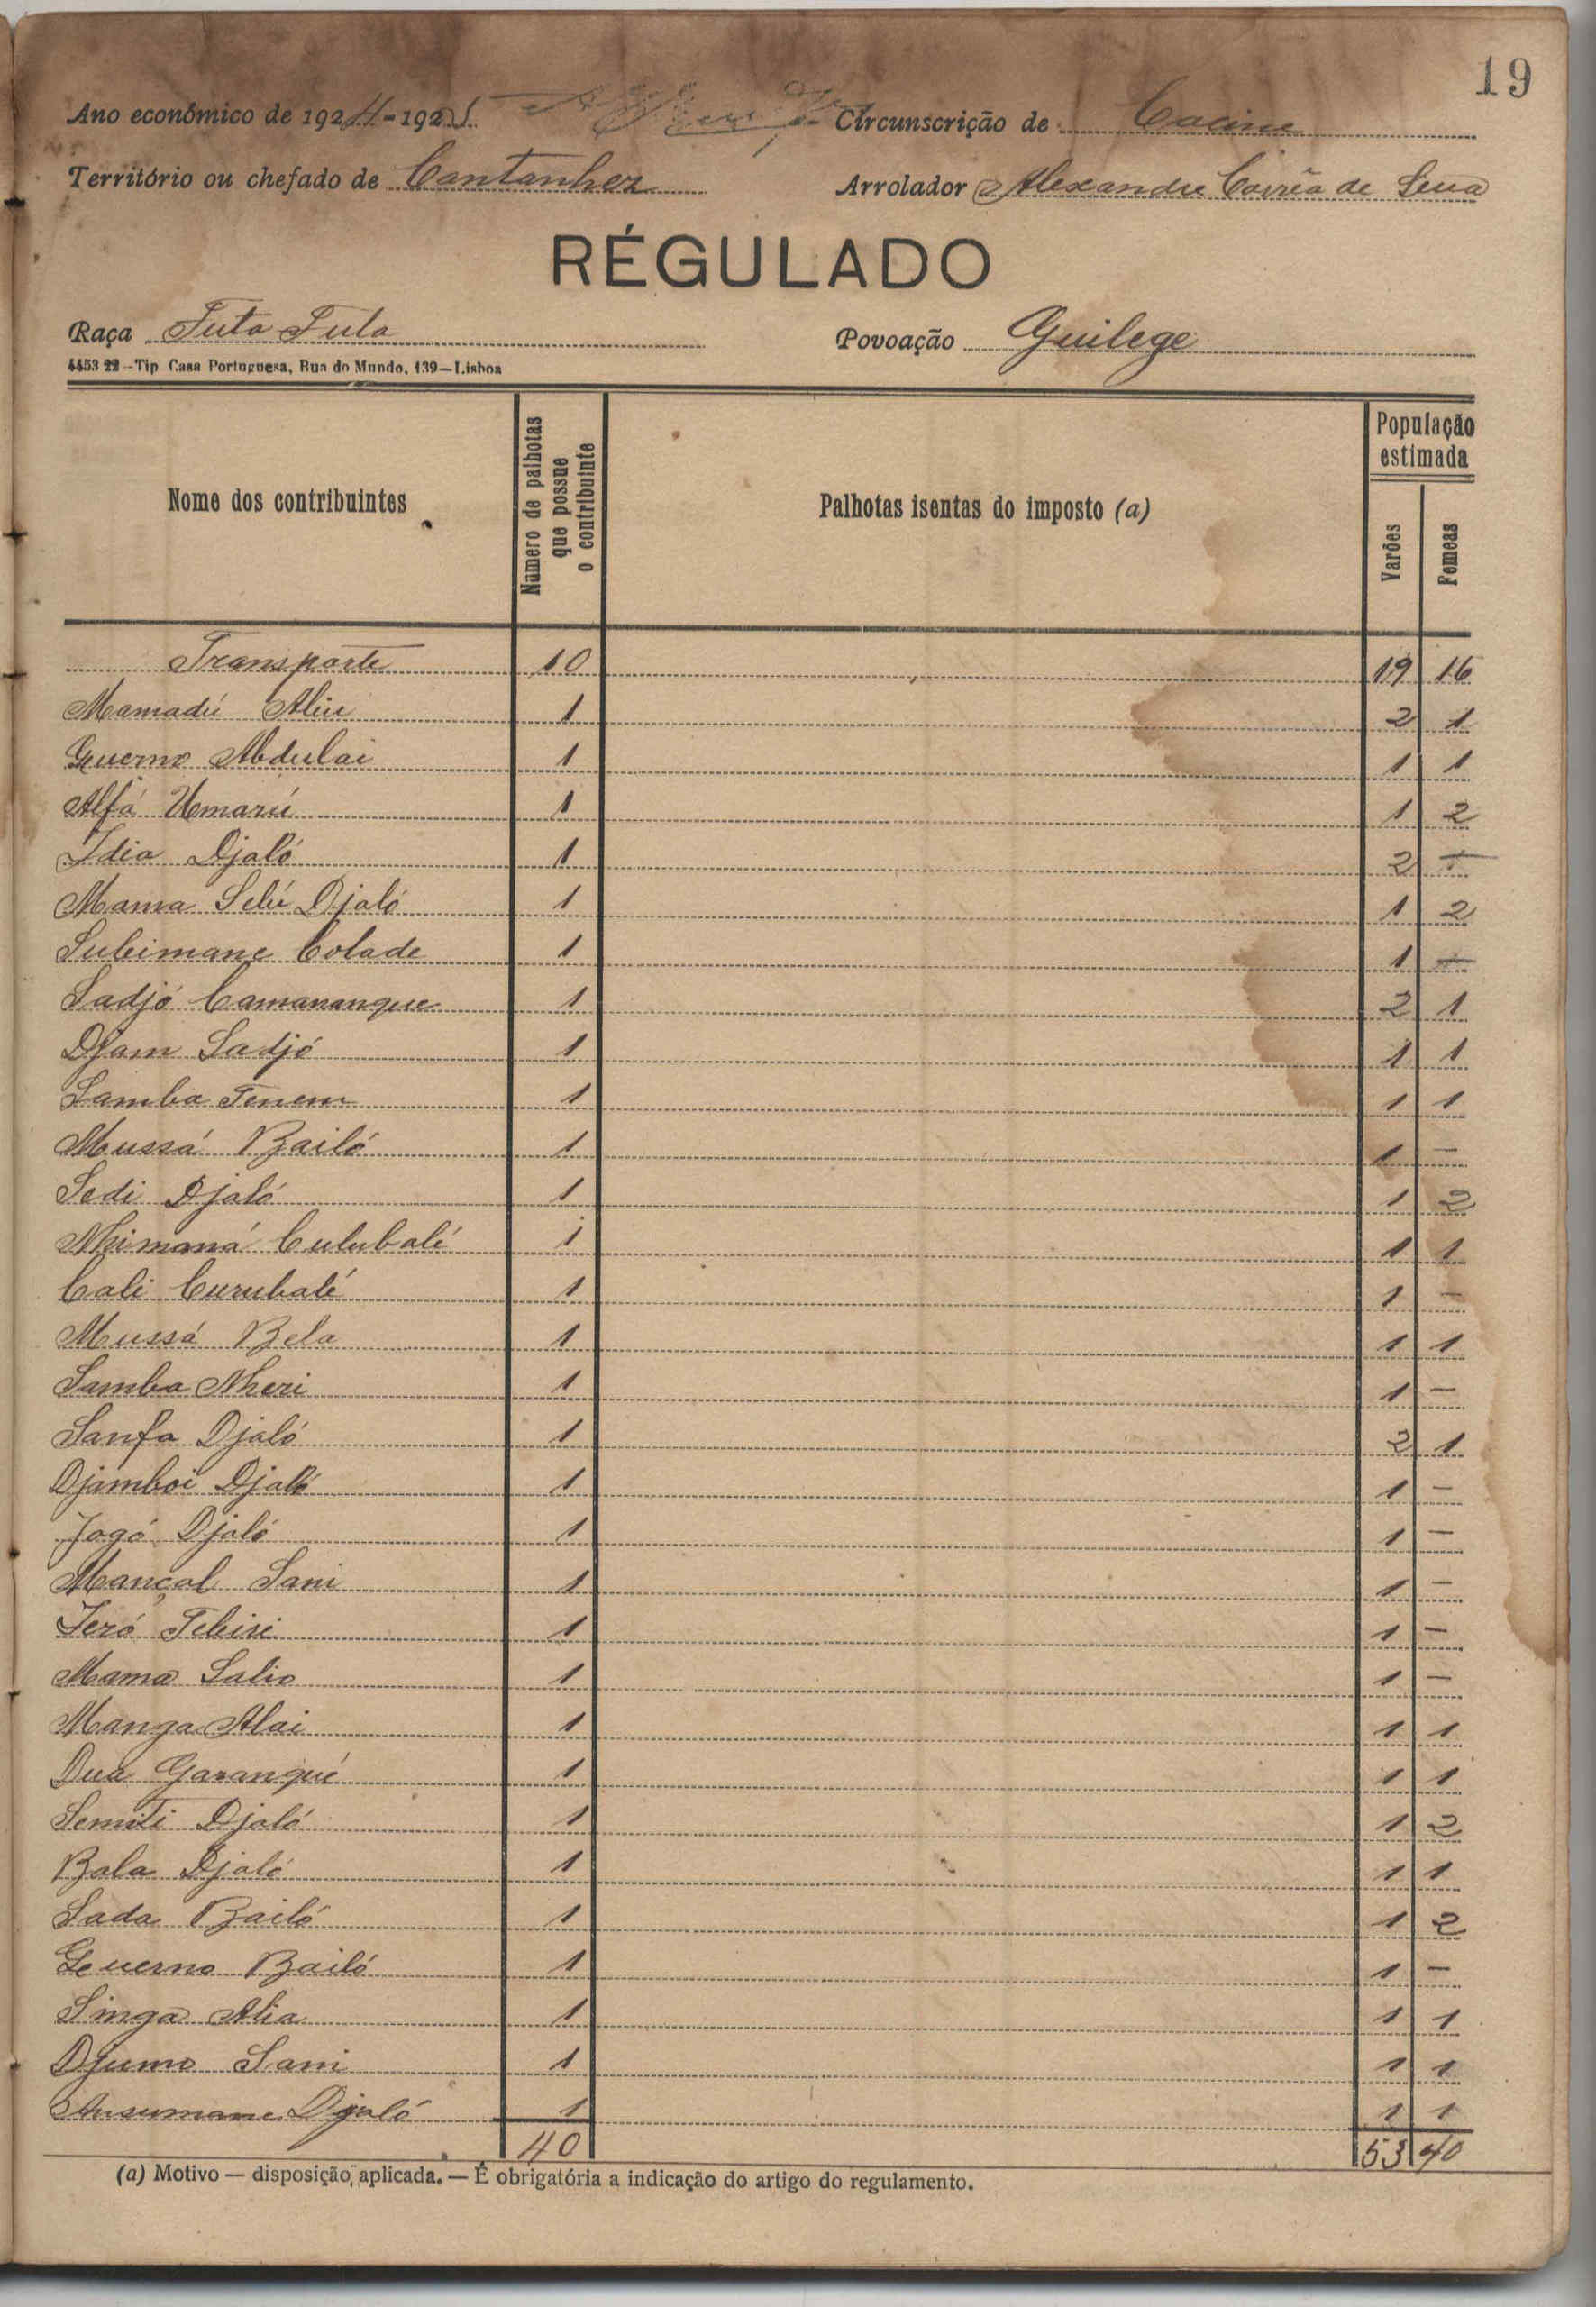 19
Ano económico de 1924-1925 Circunscrição de Cacine
Território ou chefado de Cantanhez Arrolador Alexandre Corrêa de Sena
RÉGULADO
Raça Futa Fula Povoação Guilege
4453 22-Tip Casa Portuguesa, Rua do Mundo, 139-Lisboa
Nome dos contribuintes Número de palhotas que possue o contribuinte Palhotas isentas do imposto (a) População estimada Varões Femeas
Transporte 10 19 16
Mamadú Aliu 1 2 1
Guerno Abdulai 1 1 1
Alfá Umarú 1 1 2
Idia Djaló 1 2 -
Mama Selú Djaló 1 1 2
Suleimane Colade 1 1 -
Sadjó Camananque 1 2 1
Djam Sadjó 1 1 1
Samba Tenem 1 1 1
Mussá Bailó 1 1 -
Sedi Djaló 1 1 2
Nhimaná Culubalé 1 1 1
Cali Curubalé 1 1 -
Mussá Bela 1 1 1
Samba Nheri 1 1 -
Sanfa Djaló 1 2 1
Djamboi Djaló 1 1 -
Jogó Djaló 1 1 -
Mançal Sani 1 1 -
Ieró Tebiri 1 1 -
Mama Salio 1 1 -
Manga Alai 1 1 1
Dua Garanqué 1 1 1
Semiti Djaló 1 1 2
Bala Djaló 1 1 1
Sada Bailó 1 1 2
Guerno Bailó 1 1 -
Singa Alia 1 1 1
Djumo Sani 1 1 1
Ansumane Djaló 1 1 1
40 53 40
(a) Motivo — disposição, aplicada. — É obrigatória a indicação do artigo do regulamento.